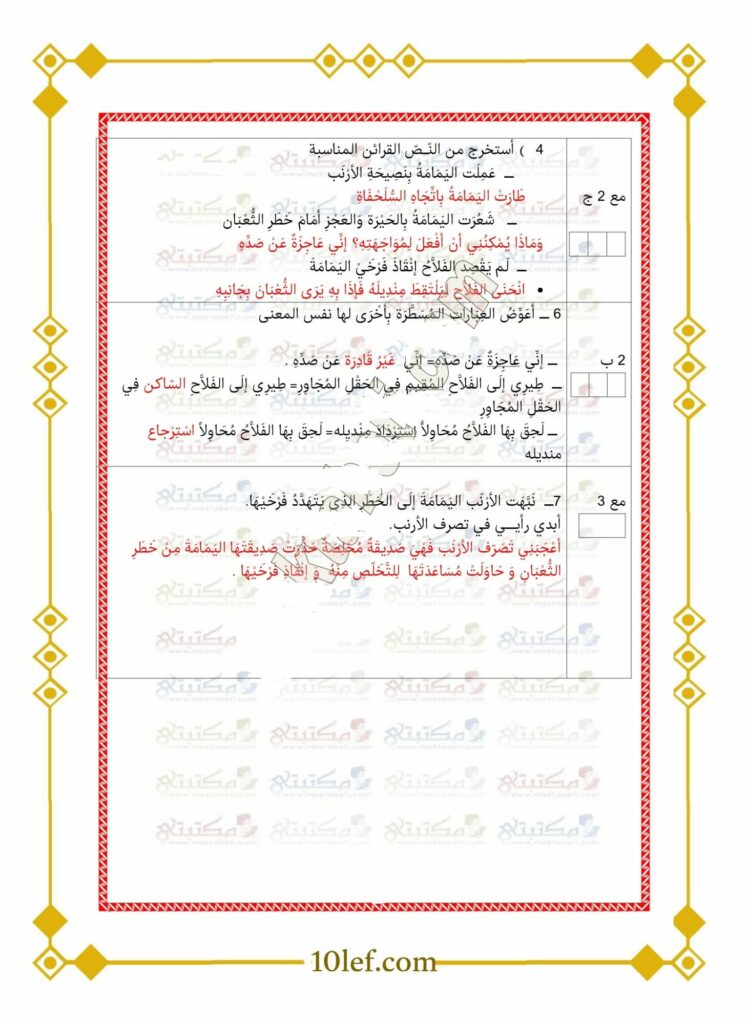 4 ) أستخرج من النّـصّ القرائن المناسبةِ
ــ عَمِلَت اليَمَامَةُ بِنَصِيحَةِ الأرْنَب
مع 2 ج
طَارَتْ اليَمَامَةُ بِاتِّجَاهِ السُّلَحْفَاةِ
ــ شَعُرَت اليَمَامَةُ بِالحَيْرَة وَالعَجْزِ أمَامَ خَطَرِ الثُّعْبَان
وَمَاذَا يُمْكِنُنِي أن أفْعَلَ لِمُوَاجَهَتِهِ؟ إنِّي عَاجِزَةٌ عَنْ صَدِّهِ
ــ لَم يَقْصِد الفَلاَّحُ إنْقَاذَ فَرْخَيْ اليَمَامَة
• انْحَنَى الفَلاَّح لِيَلْتَقِطَ مِنْدِيلَهُ فَإذَا بِهِ يَرَى الثُّعْبَان بِجَانِبِهِ
6 ــ أعَوِّضُ العِبَارَات المُسَطَّرَة بِأخْرَى لها نفس المعنى
2 ب
ــ إنِّي عَاجِزَةٌ عَنْ صَدِّهِ= إنِّي غَيْرُ قَادِرَة عَنْ صَدِّهِ .
ــ طِيرِي إلَى الفَلاَّح المُقِيم فِي الحَقْلِ المُجَاوِرِ= طِيرِي إلَى الفَلاَّحِ السّاكن فِي
الحَقْلِ المُجَاوِرِ
ــ لَحِقَ بِهَا الفَلاَّحُ مُحَاوِلاً اسْتِرْدَادَ مِنْدِيلِه= لَحِقَ بِهَا الفَلاَّحُ مُحَاوِلاً اسْتِرْجاع
منديله
مع 3
7ــ نَبَّهَت الأرْنَب اليَمَامَةَ إلَى الخَطَرِ الذي يَتَهَدَّدُ فَرْخَيْهَا.
أبدي رأيـــي في تصرف الأرنب.
أعْجَبَنِي تَصَرّف الأرْنَب فَهْيَ صَدِيقَةٌ مُخْلِصَةٌ حَذَّرَت صَدِيقَتَهَا اليَمَامَة مِنْ خَطَرِ
الثُّعْبَانِ وَ حَاوَلَتْ مُسَاعَدَتَهَا لِلتَّخَلّصِ مِنْهُ وَ إنْقَاذِ فَرْخَيْهَا .
10lef.com